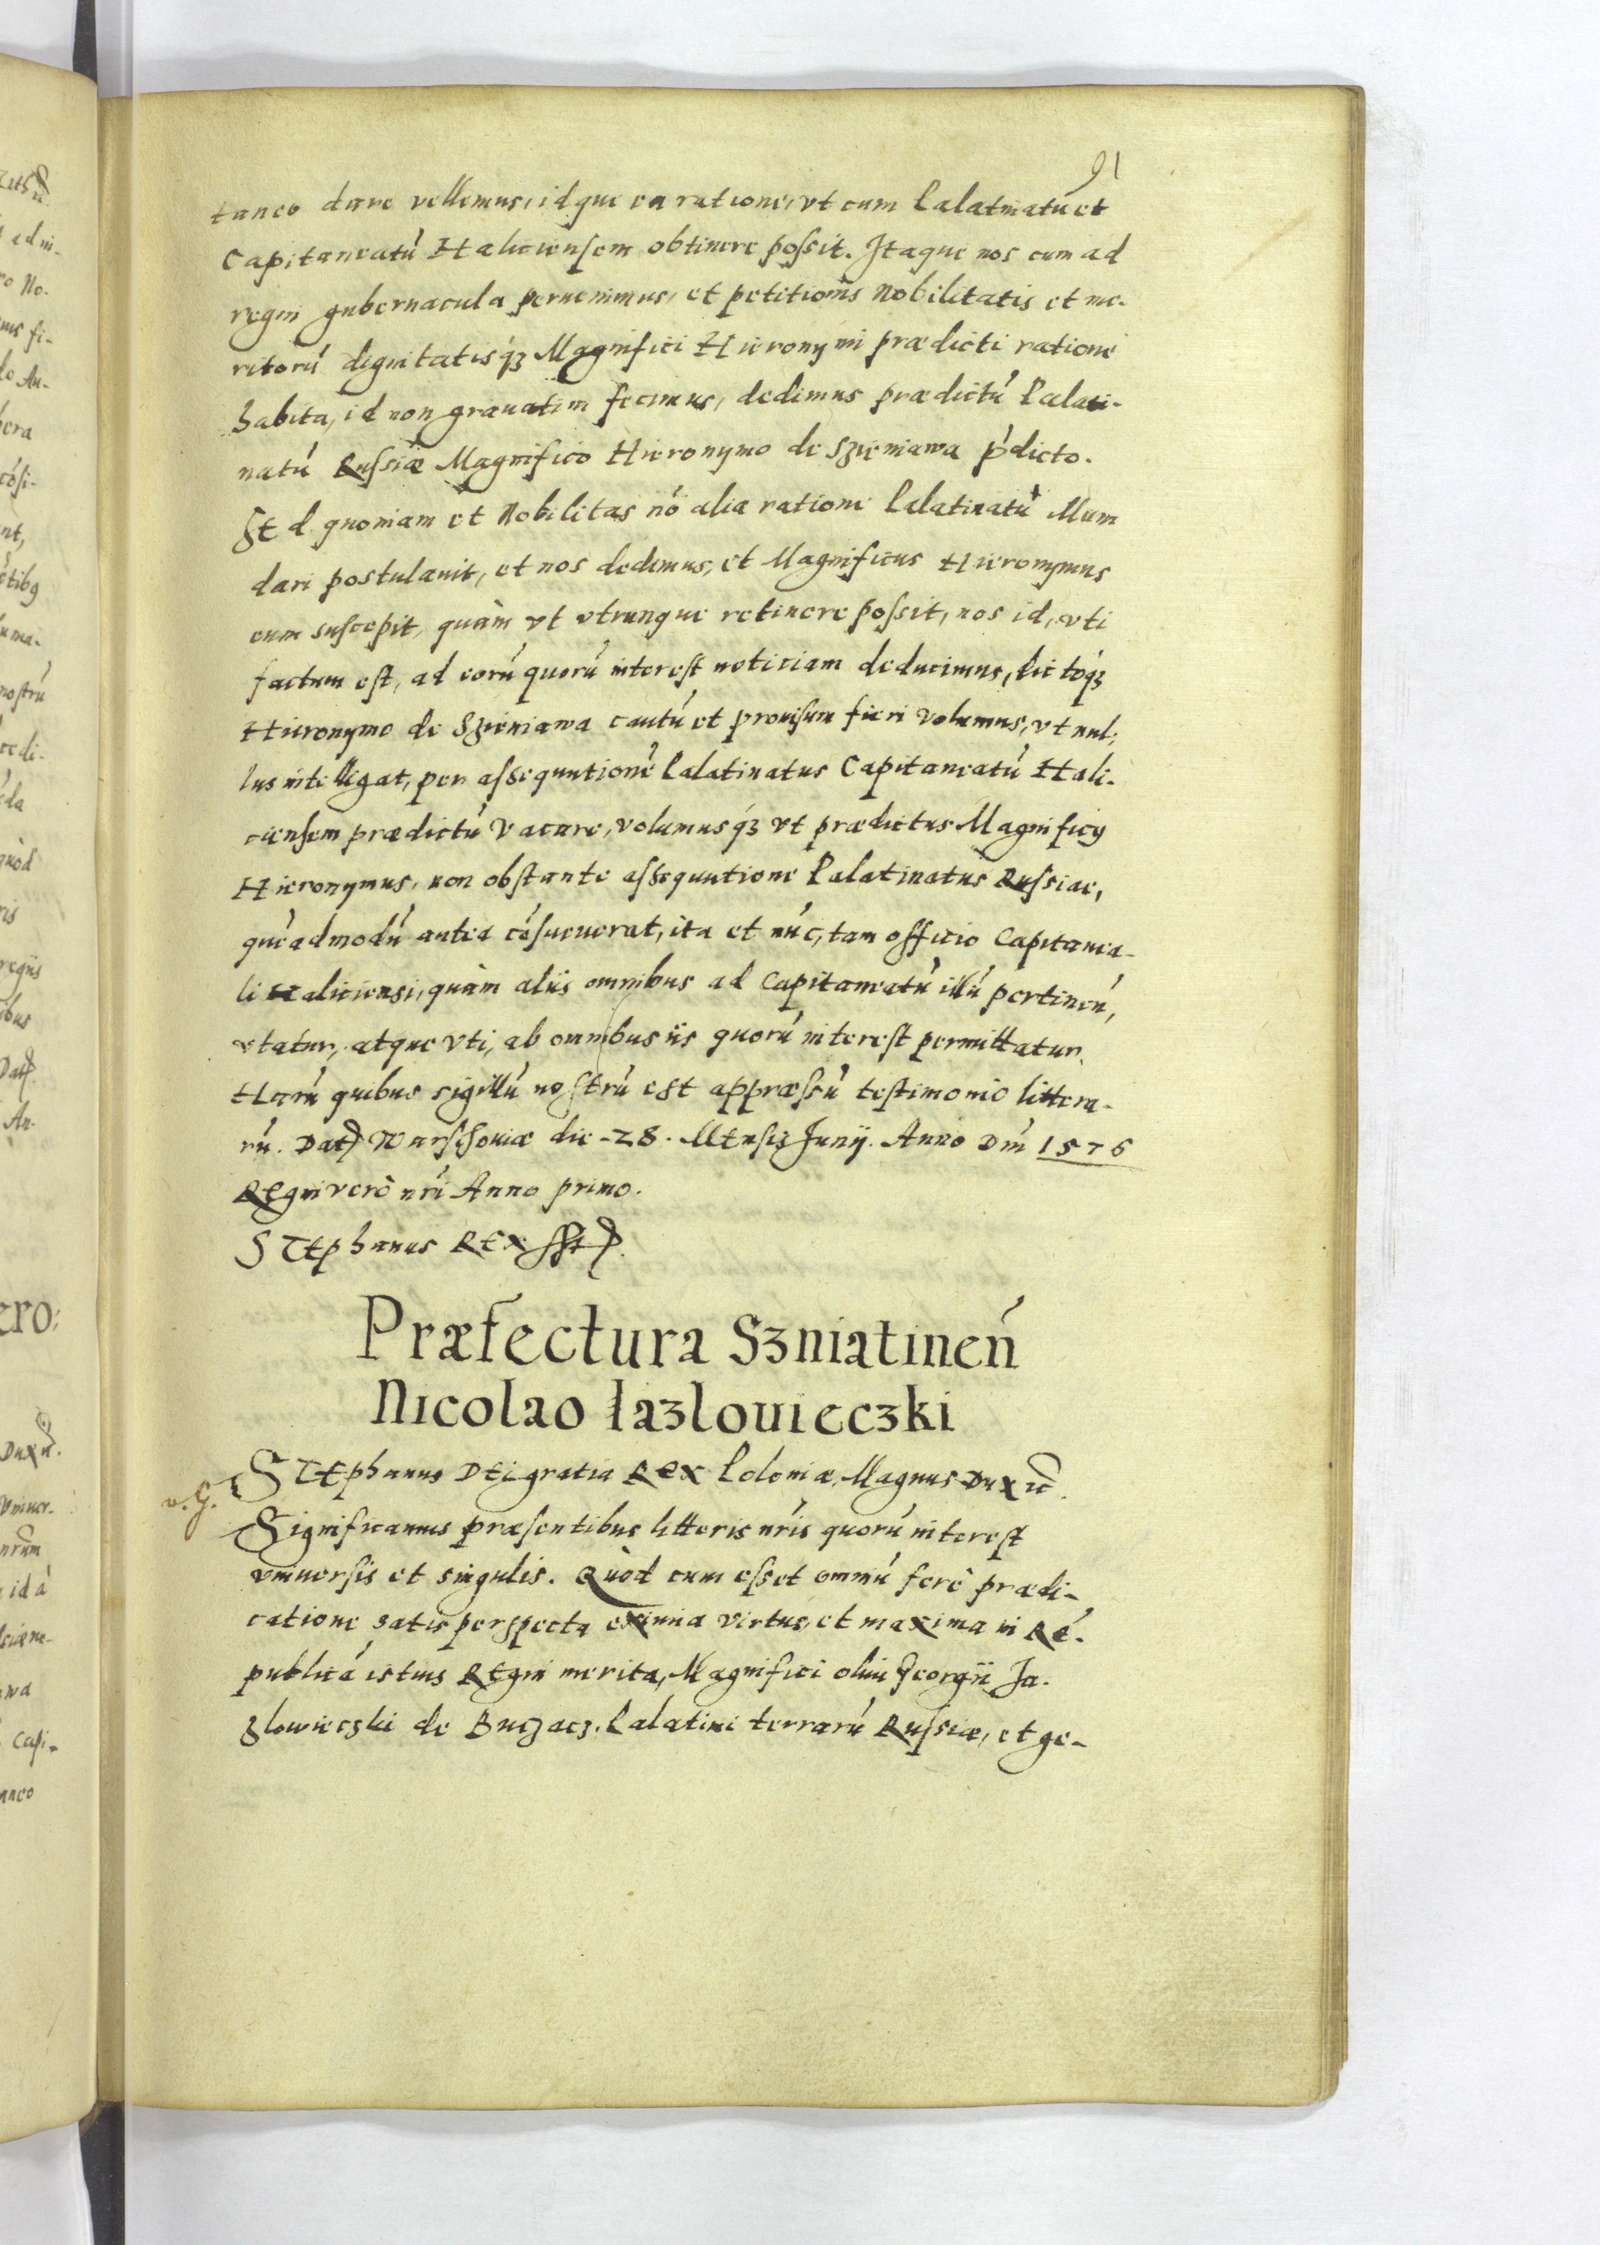 91
taneo dare vellemus, idque ea ratione, vt cum Palatinatú et
Capitaneatú Haliciensem obtinere possit. Itaque nos cum ad
regni gubernacula peruenimus, et petitionis Nobilitatis et me-
ritorú dignitatisq́ꝫ Magnifici Hieronymi prædicti ratione
habita, id non grauatim fecimus, dedimus prædictú Palati-
natú Russiæ Magnifico Hieronymo de Szieniawa ṕdicto.
Sed quoniam et Nobilitas nó alia ratione Palatinatú illum
dari postulauit, et nos dedimus, et Magnificus Hieronymus
eum suscepit, quàm vt vtrunque retinere possit, nos id, vti
factum est, ad eorú quorú interest noticiam deducimus, dictoq́ꝫ
Hieronymo de Szieniawa cautú et prouisum fieri volumus, vt nul-
lus intelligat, per assequutioné Palatinatus Capitaneatú Hali-
ciensem prædictú vacare, volumusq́ꝫ vt prædictus Magnificꝰ
Hieronymus, non obstante assequutione Palatinatus Russiae,
quéadmodú antea cósueuerat, ita et núc, tam officio Capitanea-
li Haliciensi, quàm aliis omnibus ad Capitaneatú illú pertineń,
vtatur, atque vti, ab omnibus iis quorú interest permittatur.
Harú quibus sigillú nostrú est appræssú testimonio littera-
rú. Datꝭ Warschouiæ die -28. Mensis Junij. Anno Dńi 1576
Regni verò nŕi Anno primo.
Stephanus Rex sstꝭ.
Præfectura Szniatineń
Nicolao Iazlouieczki
v. G.
Stephanus Dei gratia Rex Poloniæ, Magnus Dux ꝛc̃.
Significamus præsentibus litteris nŕis quorú interest
vniuersis et singulis. Quòd cum esset omniú ferè prædi-
catione satis perspecta eximia virtus, et maxima in Ré-
publicá istius Regni merita, Magnifici olim Georgii Ja-
zlowieczki de Buczacz, Palatini terrarú Russiæ, et ge-